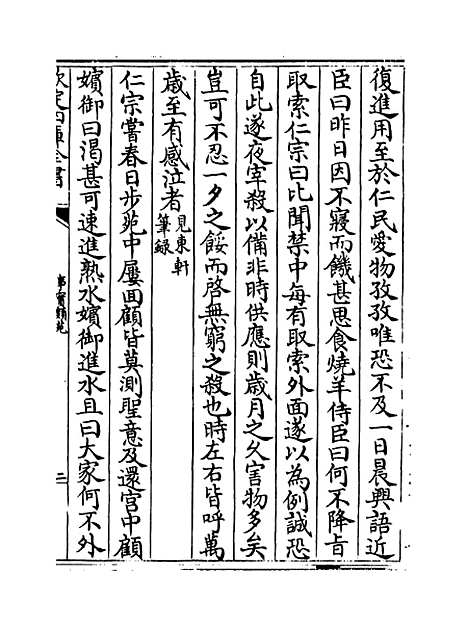 復進用至於仁民愛物孜孜唯恐不及一日晨興語近
臣曰昨日因不寢而饑甚思食燒羊侍臣曰何不降旨
取索仁宗曰比聞禁中每有取索外面遂以為例誠恐
自此遂夜宰殺以備非時供應則歲月之久害物多矣
豈可不忍一夕之餒而啓無窮之殺也時左右皆呼萬
歲至有感泣者見東軒筆録
仁宗嘗春日步苑中屢面顧皆莫測聖意及還宫中顧
嬪御曰渴甚可速進熟水嬪御進水且曰大家何不外
欽定四庫全書
事實類苑
三